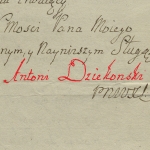 Mości Pana Moiego
nym, y Nayniższym Sługą
Antoni Dziekonski